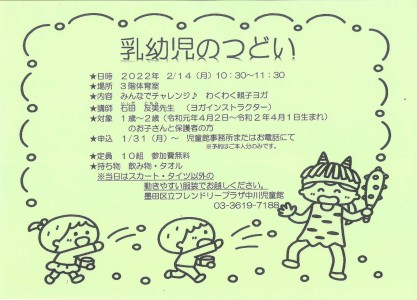 乳幼児のつどい
★日時 2022年 2/14(月)10:30~11:30
★場所 3階体育室
★内容 みんなでチャレンジ♪ わくわく親子ヨガ
★講師 石田 友美先生 (ヨガインストラクター)
★対象 1歳~2歳(令和元年4月2日~令和2年4月1日生まれ)
のお子さんと保護者の方
★申込 1/31(月)~ 児童館事務所またはお電話にて
※予約はご本人分のみです。
★定員 10組 参加費無料
★持ち物 飲み物・タオル
※当日はスカート・タイツ以外の
動きやすい服装でお越しください。
墨田区立フレンドリープラザ中川児童館
03-3619-7188